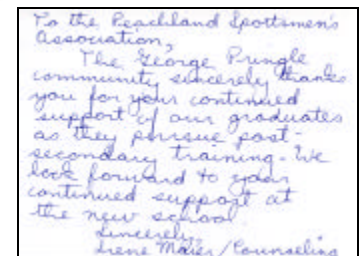 To the Peachland Sportsmen's
Association,
The George Pringle
community sincerely thanks
you for your continued
support of our graduates
as they pursue post-
secondary training. We
look forward to your
continued support at
the new school
Sincerely,
Irene Maier/Counseling